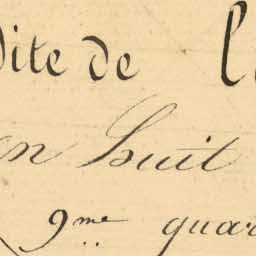 dite de l
en huit
9me quar